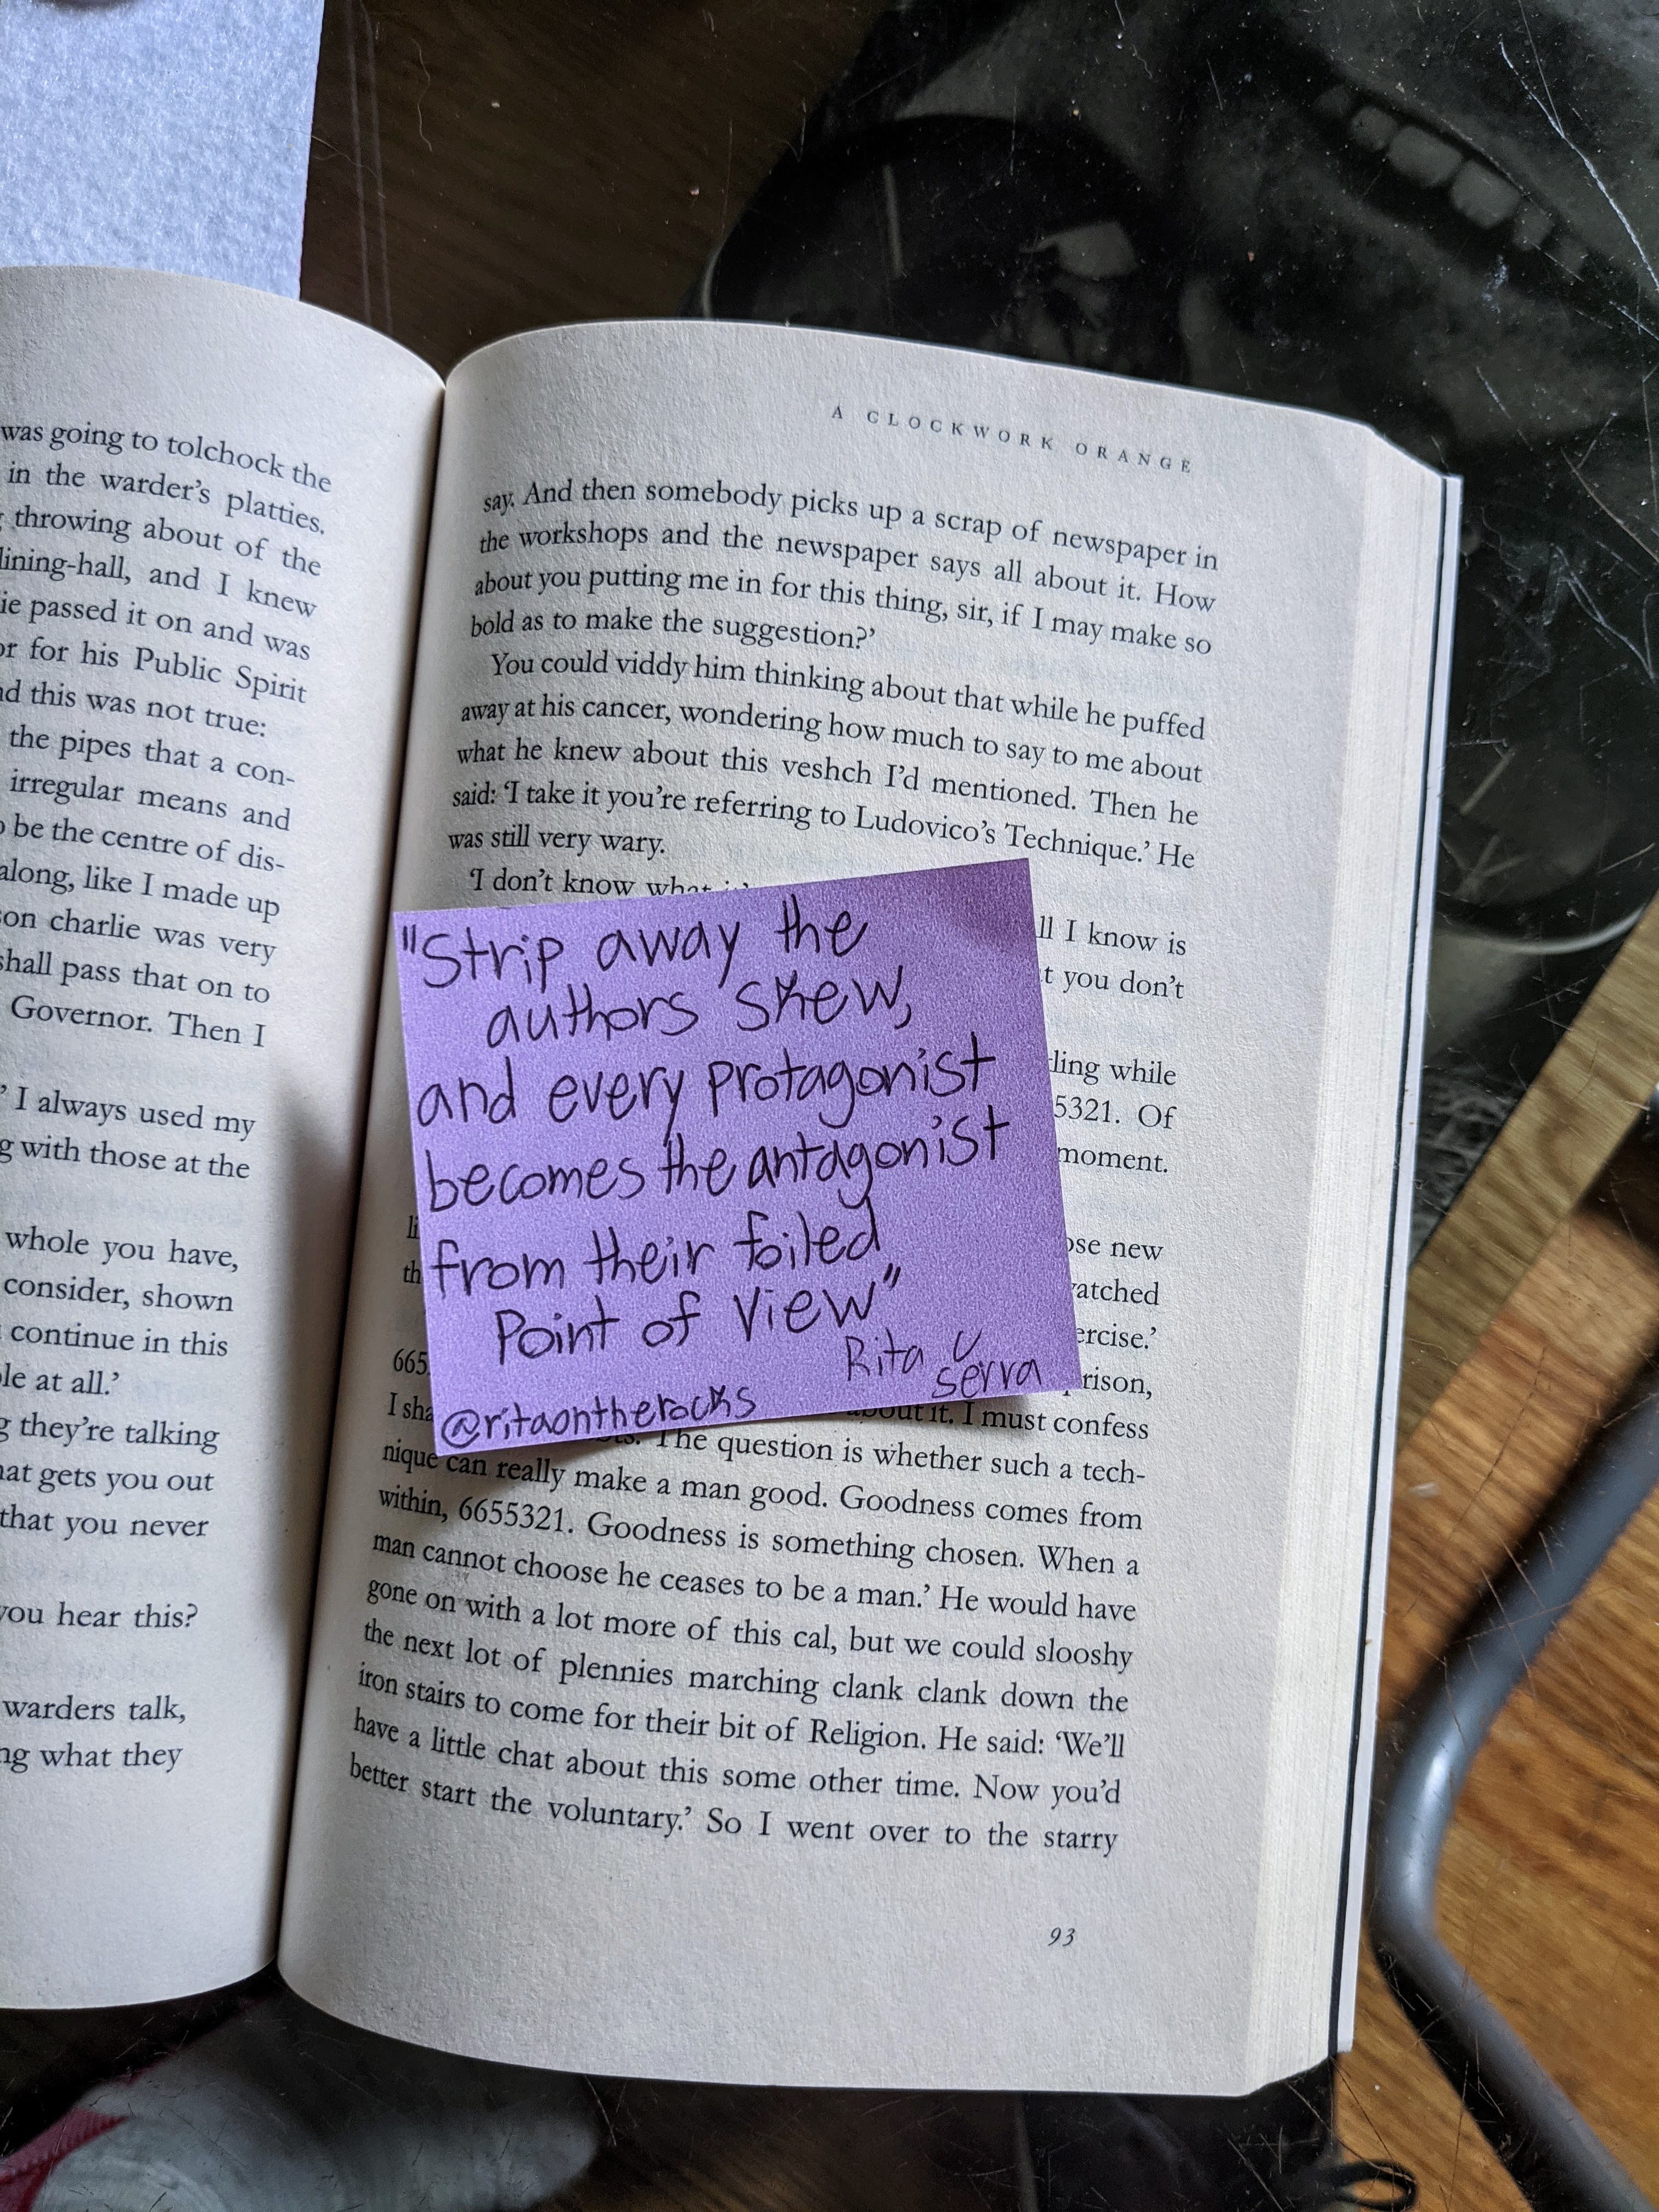 was going to tolchock the
in the warder's platties.
throwing about of the
dining-hall, and I knew
passed it on and was
for his Public Spirit
this was not true:
the pipes that a con-
irregular means and
be the centre of dis-
along, like I made up
charlie was very
shall pass that on to
Governor. Then I
' I always used my
with those at the
whole you have,
consider, shown
continue in this
at all.'
they're talking
gets you out
that you never
you hear this?
warders talk,
what they
A CLOCKWORK ORANGE
say. And then somebody picks up a scrap of newspaper in
the workshops and the newspaper says all about it. How
about you putting me in for this thing, sir, if I may make so
bold as to make the suggestion?'
You could viddy him thinking about that while he puffed
away at his cancer, wondering how much to say to me about
what he knew about this veshch I'd mentioned. Then he
said: 'I take it you're referring to Ludovico's Technique.' He
was still very wary.
'I don't know what
I know is
you don't
while
5321. Of
moment.
new
watched
'
665
I sha
about it. I must confess
The question is whether such a tech-
nique can really make a man good. Goodness comes from
within, 6655321. Goodness is something chosen. When a
man cannot choose he ceases to be a man.' He would have
gone on with a lot more of this cal, but we could slooshy
the next lot of plennies marching clank clank down the
iron stairs to come for their bit of Religion. He said: 'We'll
have a little chat about this some other time. Now you'd
better start the voluntary.' So I went over to the starry
93
"Strip away the
authors skew,
and every protagonist
becomes the antagonist
from their foiled
Point of View"
Rita
Serra
@ritaontherocks